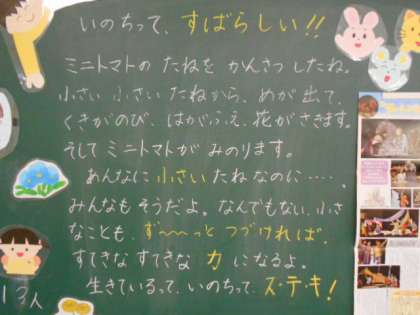 いのちって、すばらしい!!
ミニトマトの たねを かんさつ したね。
小さい 小さい たねから、めが 出て、
くきがのび、はがふえ、花がさきます。
そして ミニトマトが みのります。
あんなに 小さい たねなのに‥‥‥。
みんなも そうだよ。なんでもない、小さ
なことも、ず〜〜っと つづければ、
すてきな すてきな 力 になるよ。
生きているって、いのちって、ス・テ・キ!
13人